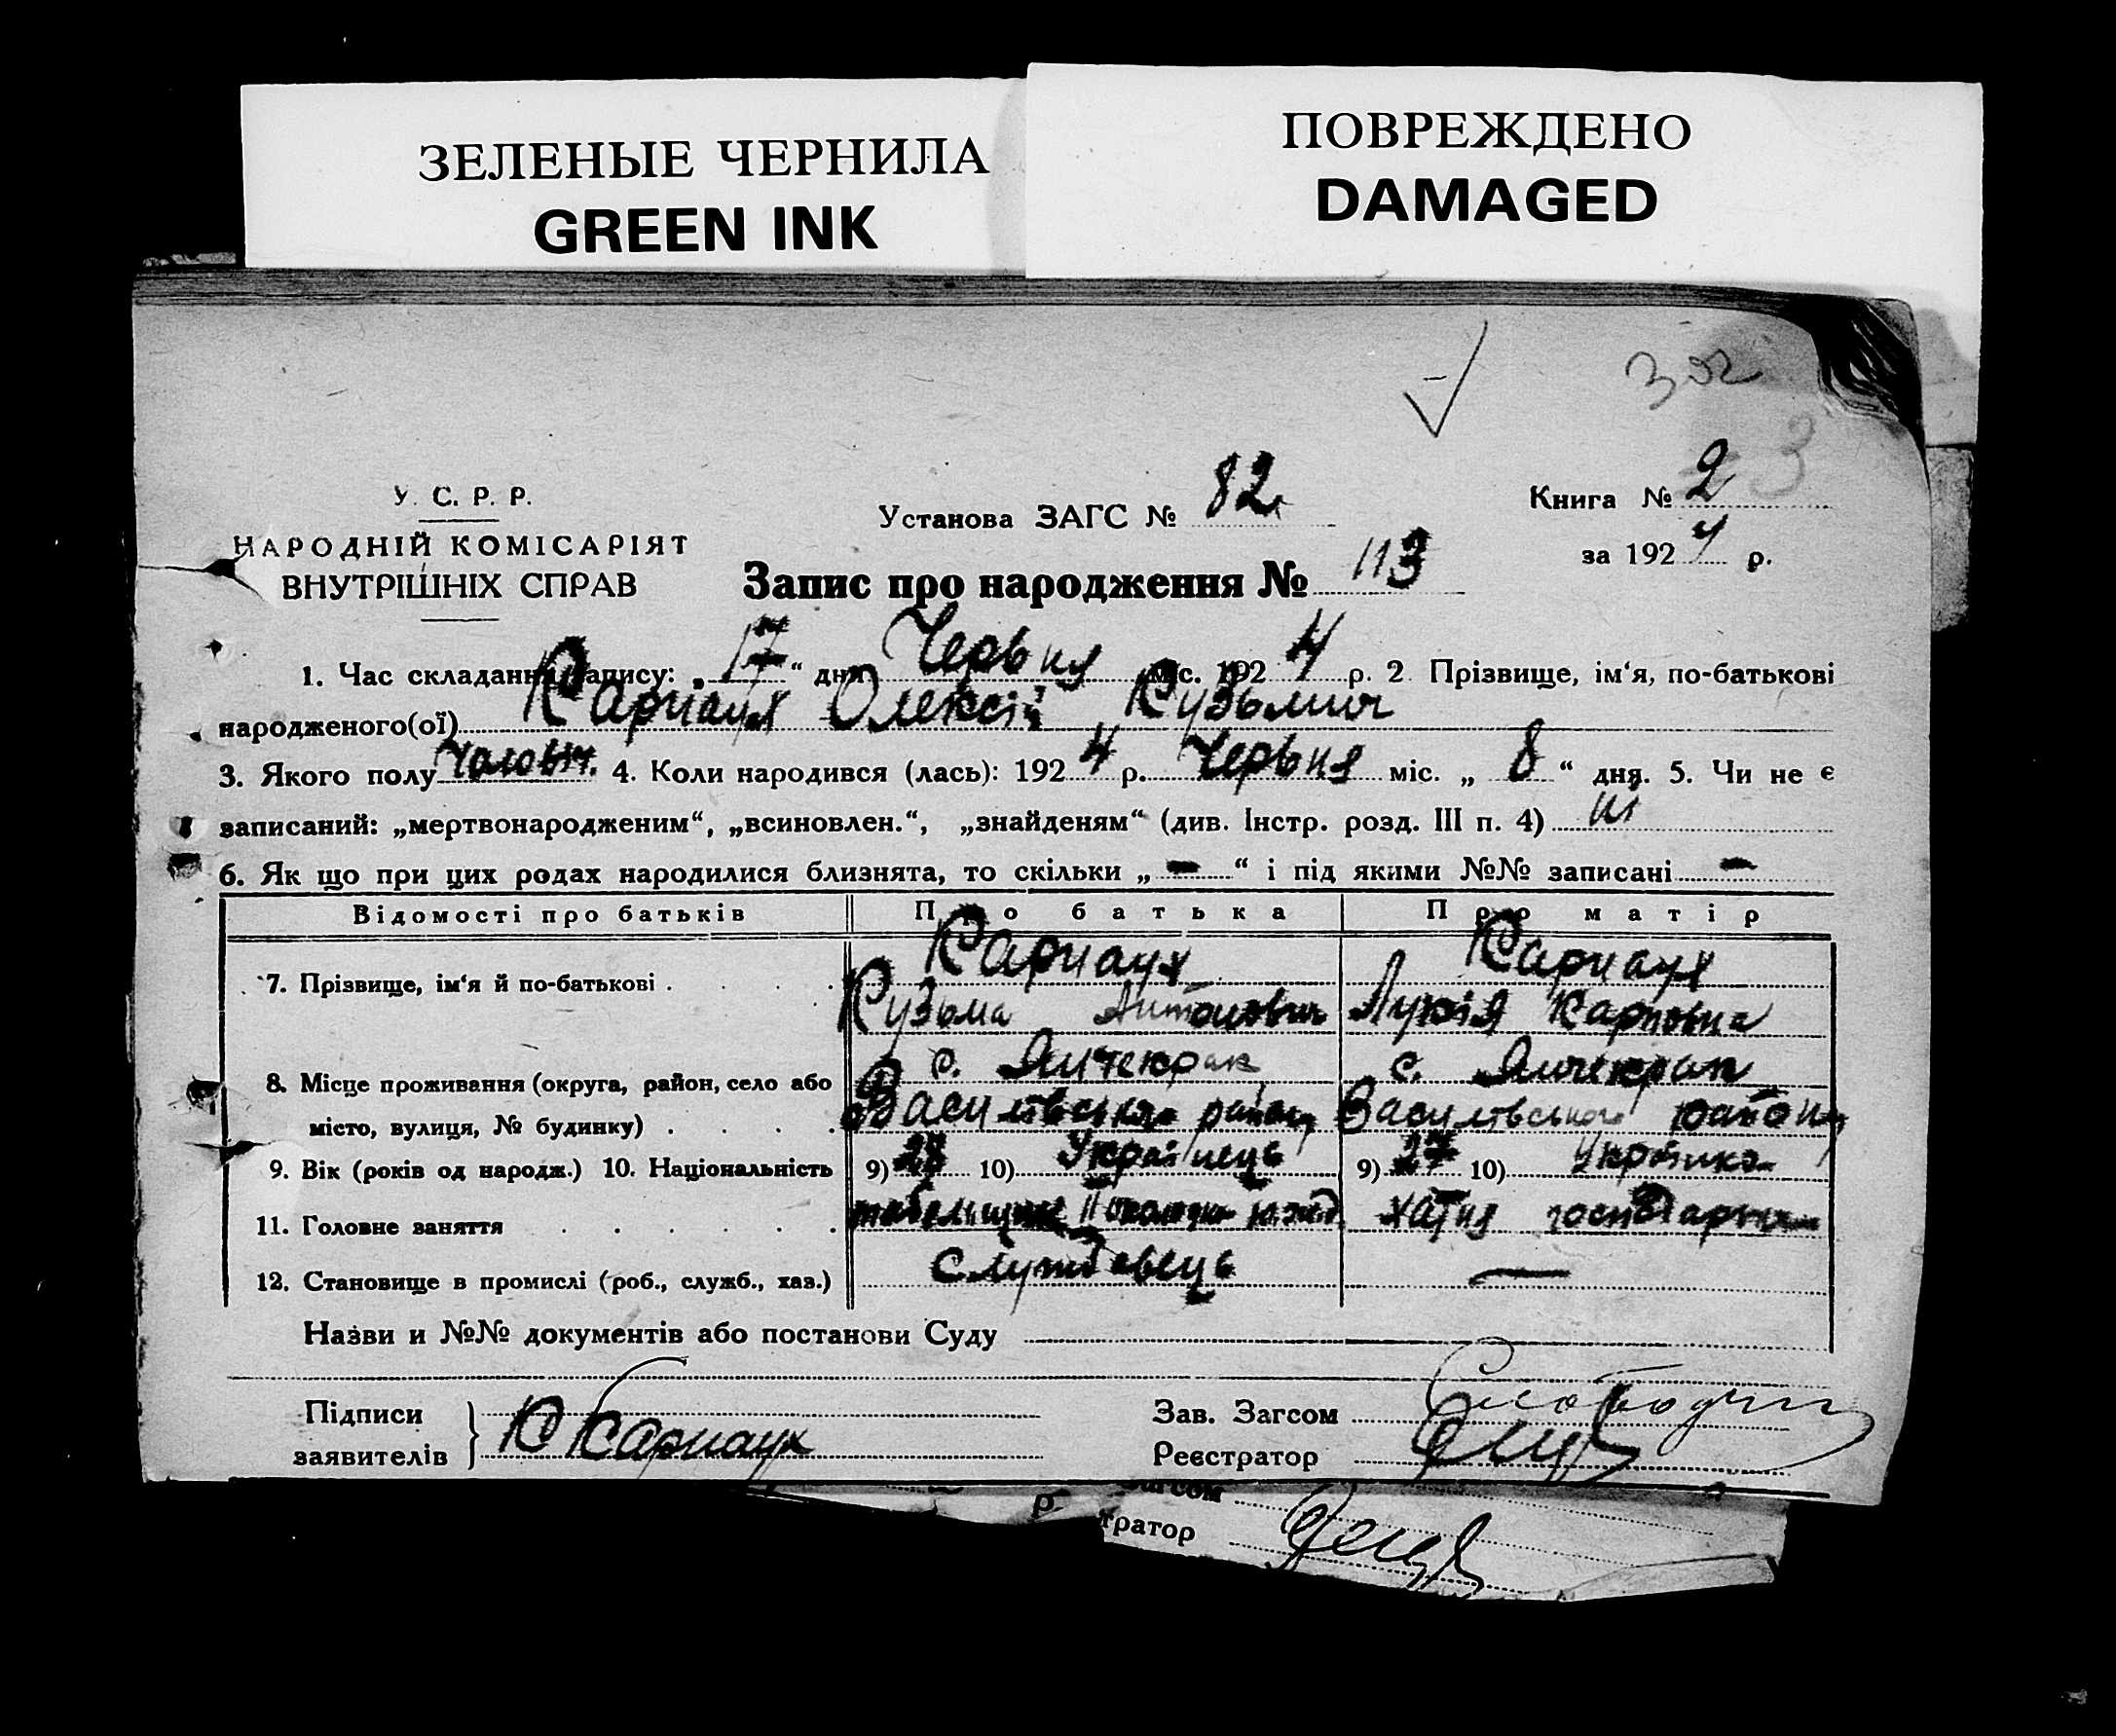 ЗЕЛЕНЫЕ ЧЕРНИЛА
GREEN INK
ПОВРЕЖДЕНО
DAMAGED
3
У. С. Р. Р.
НАРОДНІЙ КОМІСАРІЯТ
ВНУТРІШНІХ СПРАВ
Установа ЗАГС № 82
Книга № 2
за 1924 р.
Запис про народження № 113
1. Час складання запису: „17“ дня Червня міс. 1924 р. 2 Прізвище, ім‘я, по-батькові
народженого(ої) Карнаух Олексій Кузьмич
3. Якого полу чоловіч. 4. Коли народився (лась): 1924 р. Червня міс. „8“ дня. 5. Чи не є
записаний: „мертвонародженим“, „всиновлен.“, „знайденям“ (див. Інстр. розд. III п. 4) ні
6. Як що при цих родах народилися близнята, то скільки „ — “ і під якими №№ записані —
Відомості про батьків Про батька Про матір
7. Прізвище, ім‘я й по-батькові . . . . Карнаух Карнаух
Кузьма Антонович Лукія Карповна
8. Місце проживання (округа, район, село або с. Янчекрак с. Янчекрак
місто, вулиця, № будинку) . . . . Василівського району Василівського району
9. Вік (років од народж.) 10. Національність 9) 10) Українець 9) 27 10) Українка
11. Головне заняття . . . . . . табельщик хатня господарка
12. Становище в промислі (роб., служб., хаз.) Службовець —
Назви и №№ документів або постанови Суду
Підписи
заявителів } К Карнаух
Зав. Загсом
Реєстратор
р.
Загсом
тратор